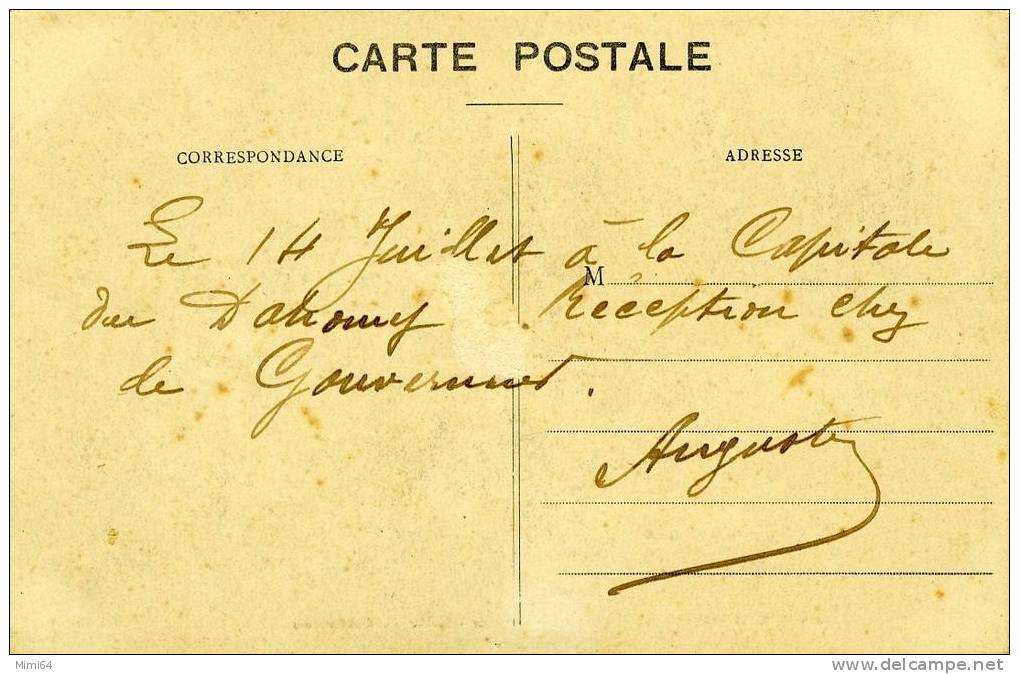 CARTE POSTALE
CORRESPONDANCE
ADRESSE
Le 14 Juillet à la Capitale
M
du Dahomey Réception chez
de Gouverneur.
Auguste
Mimi64
www.delcampe.net